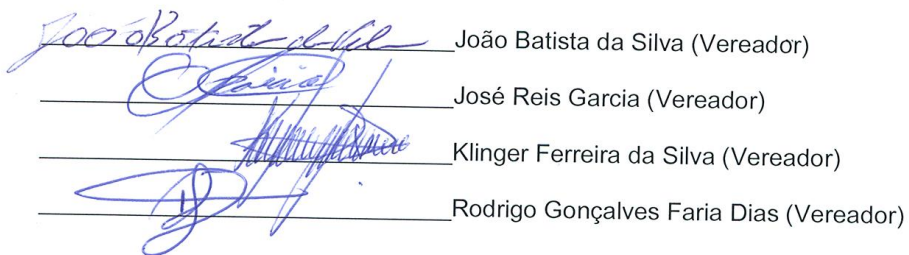 João Batista da Silva João Batista da Silva (Vereador)
José Reis Garcia (Vereador)
Klinger Ferreira da Silva (Vereador)
Rodrigo Gonçalves Faria Dias (Vereador)